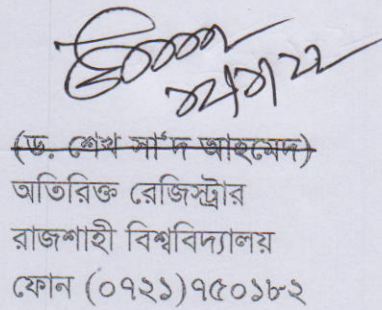 (ড. শেখ সা'দ আহমেদ)
অতিরিক্ত রেজিস্ট্রার
রাজশাহী বিশ্ববিদ্যালয়
ফোন (০৭২১)৭৫০১৮২